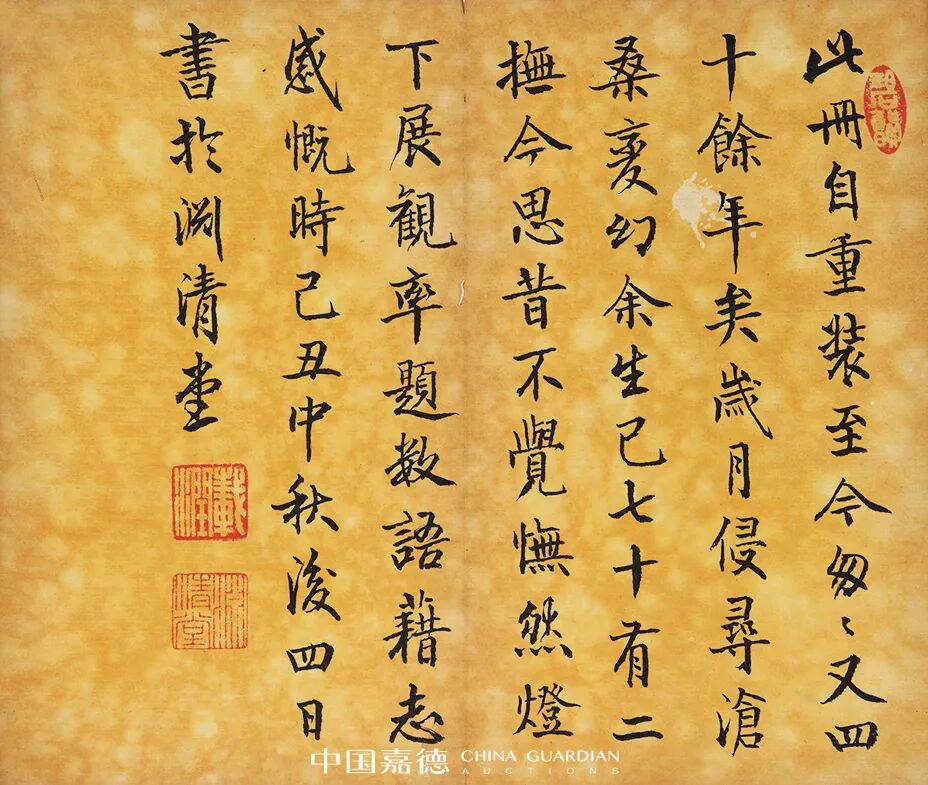 此冊自重裝至今匆〻又四
十餘年矣歲月侵尋滄
桑變幻余生已七十有二
撫今思昔不覺憮然燈
下展觀率題數語藉志
感慨時己丑中秋後四日
書於淵清堂
載潤
淵清堂
中国嘉德 CHINA GUARDIAN
AUCTIONS